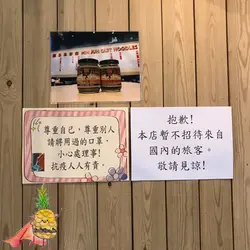 EAST NOODLES
尊重自己，尊重別人
請將用過的口罩，
小心處理事！
抗疫人人有責。
抱歉！
本店暫不招待來自
國內的旅客。
敬請見諒！